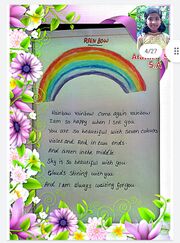 RAINBOW
4/27
Rainbow rainbow come again rainbow
I am so happy when I see you
You are so beautiful with seven colours
Violet and Red in two ends
And Green in the middle
Sky is so beautiful with you
Clouds Shining with you
And I am always waiting for you